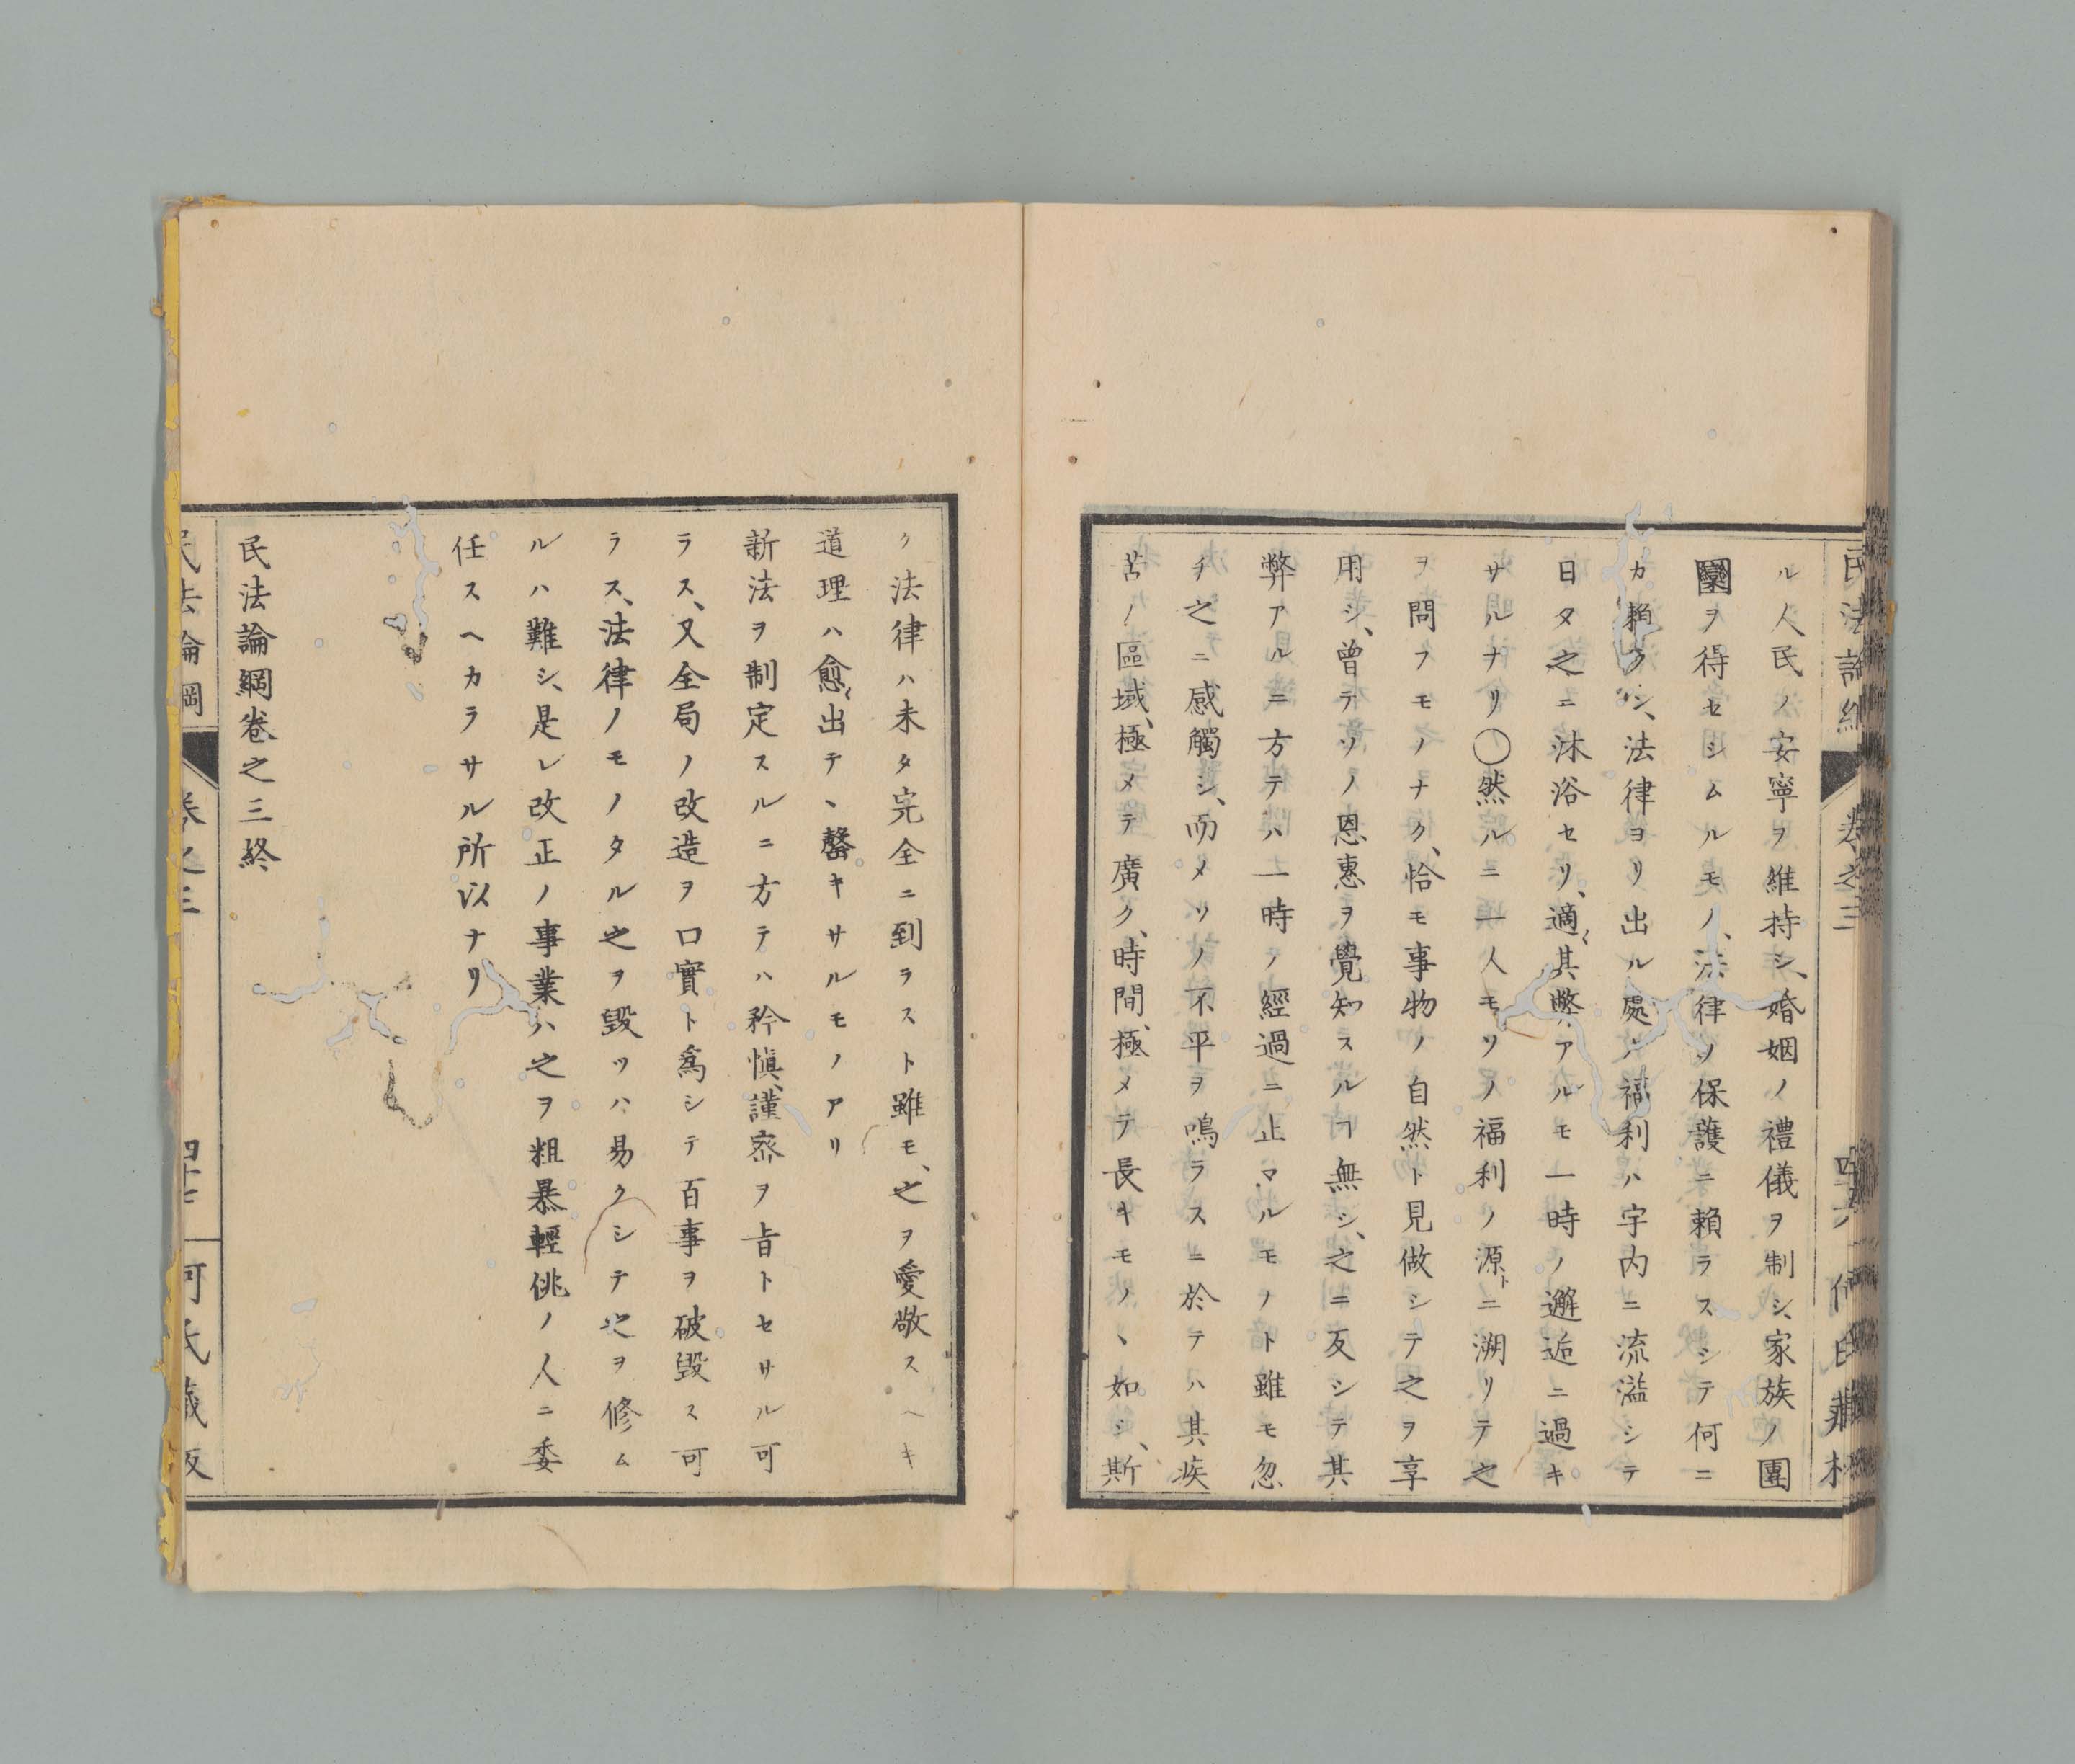 民法論綱 卷之三 四十六 何氏藏板
ル人民ノ安寧ヲ維持シ、婚姻ノ禮儀ヲ制シ、家族ノ團
圞ヲ得セシムルモノ、法律ノ保護ニ賴ラスシテ何ニ
カ賴ラン、法律ヨリ出ル處ノ福利ハ宇内ニ流溢シテ
日夕之ニ沐浴セリ、適〻其弊アルモ一時ノ邂逅ニ過キ
サルナリ〇然ルニ一人モソノ福利ノ源ト二溯リテ之
ヲ問フモノナク、恰モ事物ノ自然ト見做シテ之ヲ享
用シ、曾テソノ恩惠ヲ覺知スルヿ無シ、之ニ反シテ其
弊アルニ方テハ一時ノ經過ニ止マルモノト雖モ忽
チ之ニ感觸シ、而メソノ不平ヲ鳴ラスニ於テハ其疾
苦ノ區域、極メテ廣ク、時間、極メテ長キモノヽ如シ、斯
ク法律ハ未タ完全ニ到ラスト雖モ、之ヲ愛敬スヘキ
道理ハ愈〻出テヽ罄キサルモノアリ
新法ヲ制定スルニ方テハ矜愼、謹密ヲ旨トセサル可
ラス、又全局ノ改造ヲ口實ト爲シテ百事ヲ破毀ス可
ラス、法律ノモノタル之ヲ毀ツハ易クシテ之ヲ修ム
ルハ難シ、是レ改正ノ事業ハ之ヲ粗暴輕佻ノ人ニ委
任スヘカラサル所以ナリ
民法論綱卷之三終
民法論綱 卷之三 四十七 何氏藏板